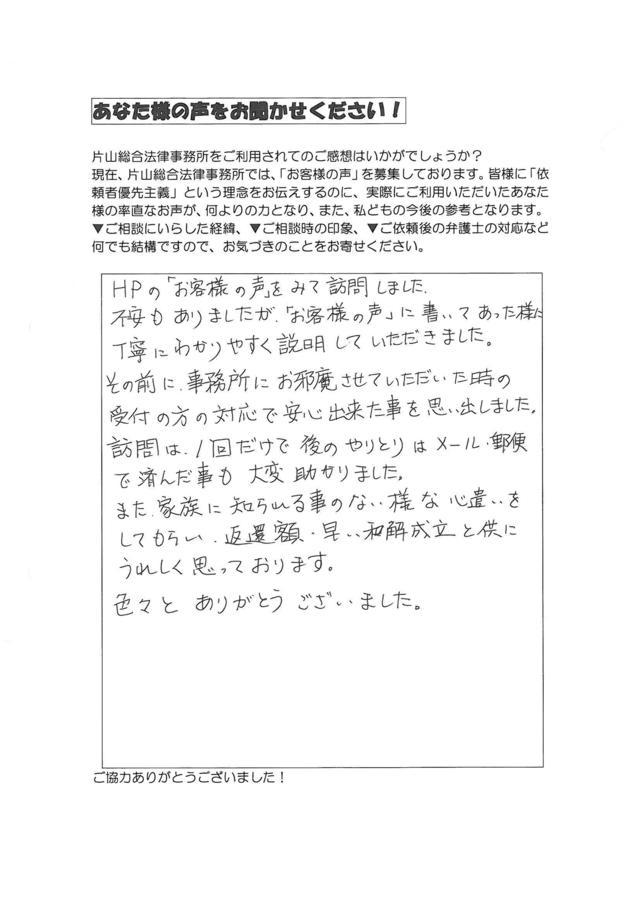 あなた様の声をお聞かせください！
片山総合法律事務所をご利用されてのご感想はいかがでしょうか？
現在、片山総合法律事務所では、「お客様の声」を募集しております。皆様に「依
頼者優先主義」という理念をお伝えするのに、実際にご利用いただいたあなた
様の率直なお声が、何よりの力となり、また、私どもの今後の参考となります。
▼ご相談にいらした経緯、▼ご相談時の印象、▼ご依頼後の弁護士の対応など
何でも結構ですので、お気づきのことをお寄せください。
HPの「お客様の声」をみて訪問しました.
不安もありましたが.「お客様の声」に書いてあった様に
丁寧にわかりやすく説明していただきました。
その前に.事務所にお邪魔させていただいた時の
受付の方の対応で安心出来た事を思い出しました。
訪問は.1回だけで後のやりとりはメール・郵便
で済んだ事も大変助かりました。
また.家族に知られる事のない様な心遣いを
してもらい.返還額・早い和解成立と供に
うれしく思っております。
色々とありがとうございました。
ご協力ありがとうございました！